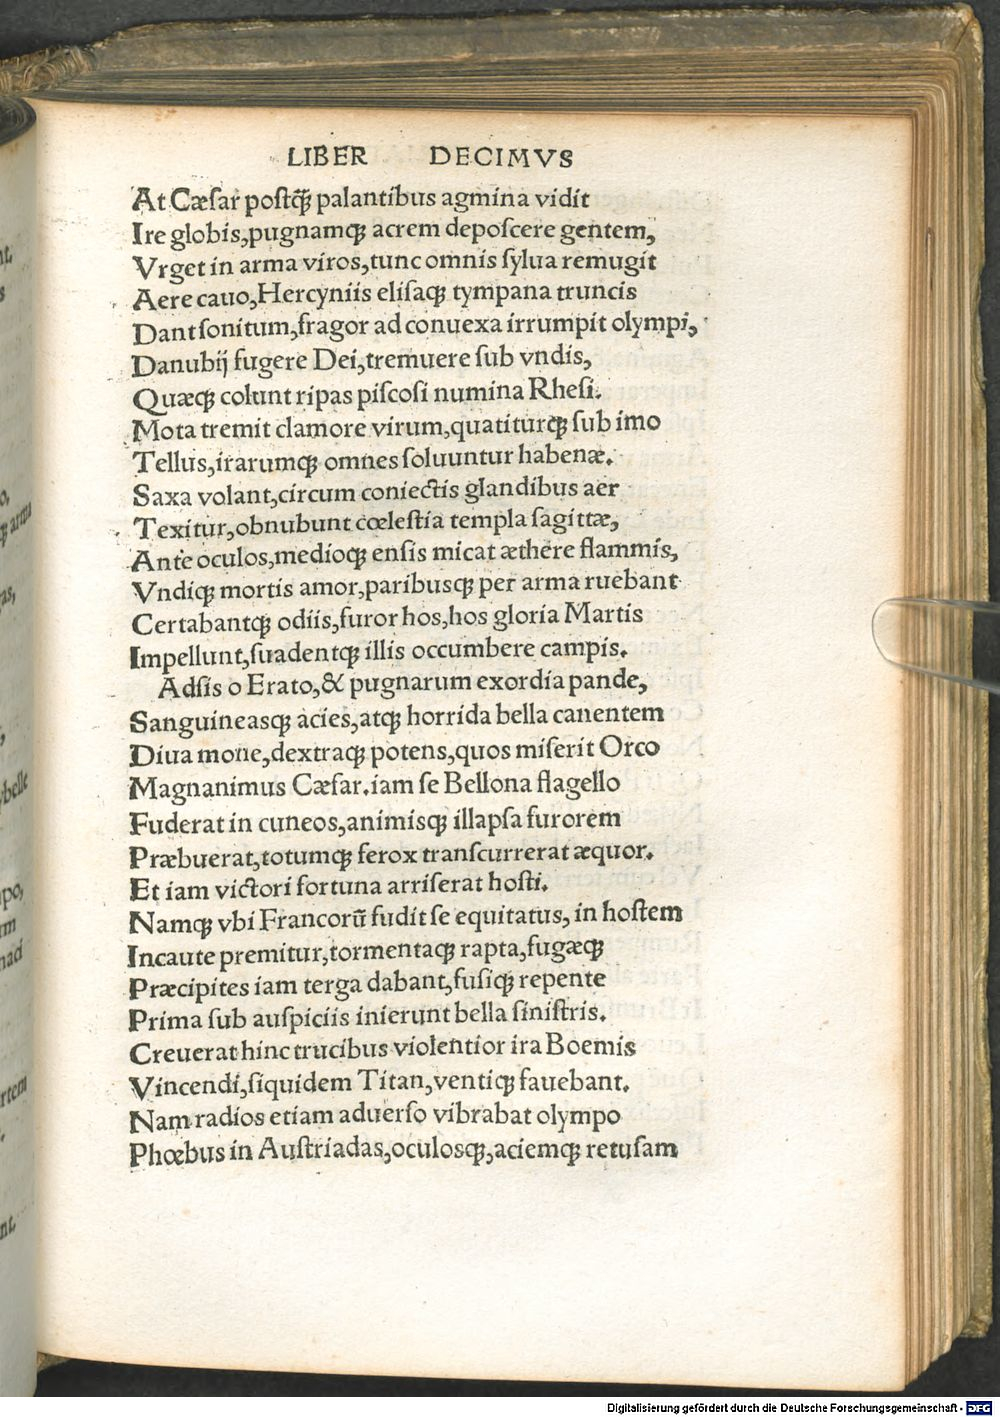 LIBER DECIMVS
At Cæſar poſtꝗ̃ palantibus agmina vidit
Ire globis,pugnamqꝫ acrem depoſcere gentem,
Vrget in arma viros,tunc omnis ſylua remugit
Aere cauo,Hercyniis eliſaqꝫ tympana truncis
Dant ſonitum,fragor ad conuexa irrumpit olympi,
Danubij fugere Dei,tremuere ſub vndis,
Quæqꝫ colunt ripas piſcoſi numina Rheſi.
Mota tremit clamore virum,quatiturqꝫ ſub imo
Tellus,irarumqꝫ omnes ſoluuntur habenæ.
Saxa volant,circum coniectis glandibus aer
Texitur,obnubunt cœleſtia templa ſagittæ,
Ante oculos,medioqꝫ enſis micat æthere flammis,
Vndiqꝫ mortis amor,paribusqꝫ per arma ruebant
Certabantqꝫ odiis,furor hos,hos gloria Martis
Impellunt,ſuadentqꝫ illis occumbere campis.
Adſis o Erato,& pugnarum exordia pande,
Sanguineasqꝫ acies,atqꝫ horrida bella canentem
Diua mone,dextraqꝫ potens,quos miſerit Orco
Magnanimus Cæſar.iam ſe Bellona flagello
Fuderat in cuneos,animisqꝫ illapſa furorem
Præbuerat,totumqꝫ ferox tranſcurrerat æquor.
Et iam victori fortuna arriſerat hoſti.
Namqꝫ vbi Francorũ fudit ſe equitatus, in hoſtem
Incaute premitur,tormentaqꝫ rapta,fugæqꝫ
Præcipites iam terga dabant,fuſiqꝫ repente
Prima ſub auſpiciis inierunt bella ſiniſtris.
Creuerat hinc trucibus violentior ira Boemis
Vincendi,ſiquidem Titan,ventiqꝫ fauebant.
Nam radios etiam aduerſo vibrabat olympo
Phœbus in Auſtriadas,oculosqꝫ,aciemqꝫ retuſam
Digitalisierung gefördert durch die Deutsche Forschungsgemeinschaft - DFG